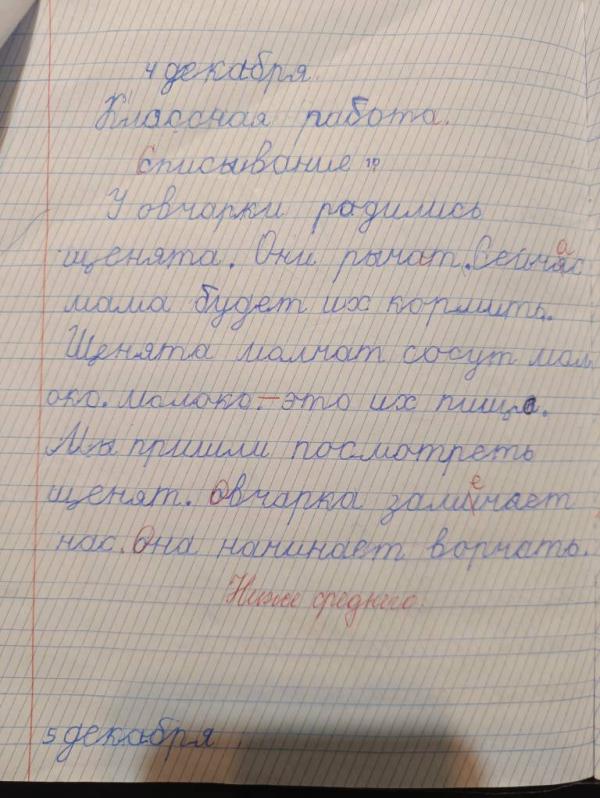 4 декабря.
Классная работа.
Списывание.
У овчарки родились
щенята. Они рычат. Сейчас
мама будет их кормить.
Щенята молчат сосут мол
око. молоко. – это их пища.
Мы пришли посмотреть
щенят. Овчарка замечает
нас. Она начинает ворчать.
Ниже среднего.
5 декабря